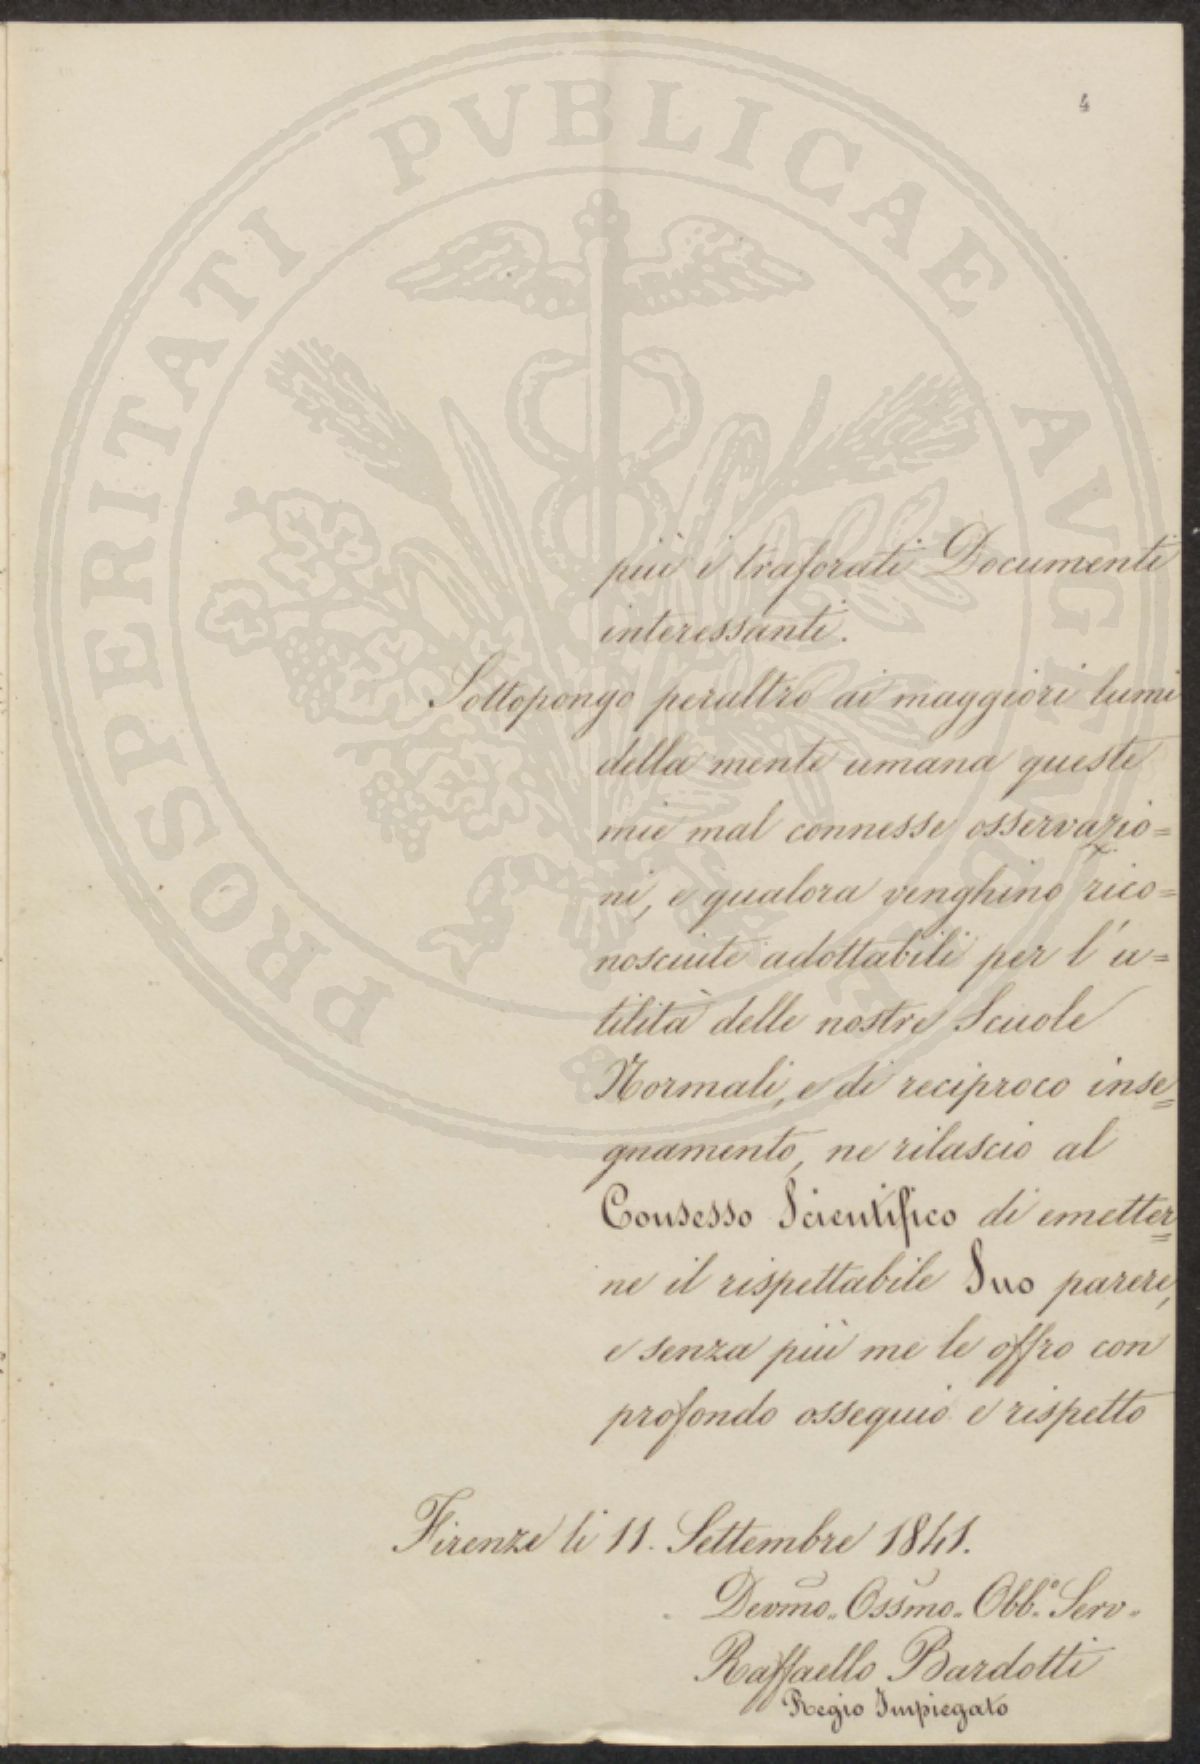 4
PROSPERITATI PVBLICAE AVGENDAE
più i traforati Documenti
interessanti.
Sottopongo peraltro ai maggiori lumi
della mente umana queste
mie mal connesse osservazio=
ni, e qualora venghino rico=
nosciute adottabili per l'u=
tilità delle nostre Scuole
Normali, e di reciproco inse=
gnamento, ne rilascio al
Consesso Scientifico di emetter=
ne il rispettabile Suo parere,
e senza più me le offro con
profondo ossequio e rispetto
Firenze li 11. Settembre 1841.
Devmo. Ossmo. Obb.º Serv.
Raffaello Bardotti
Regio Impiegato